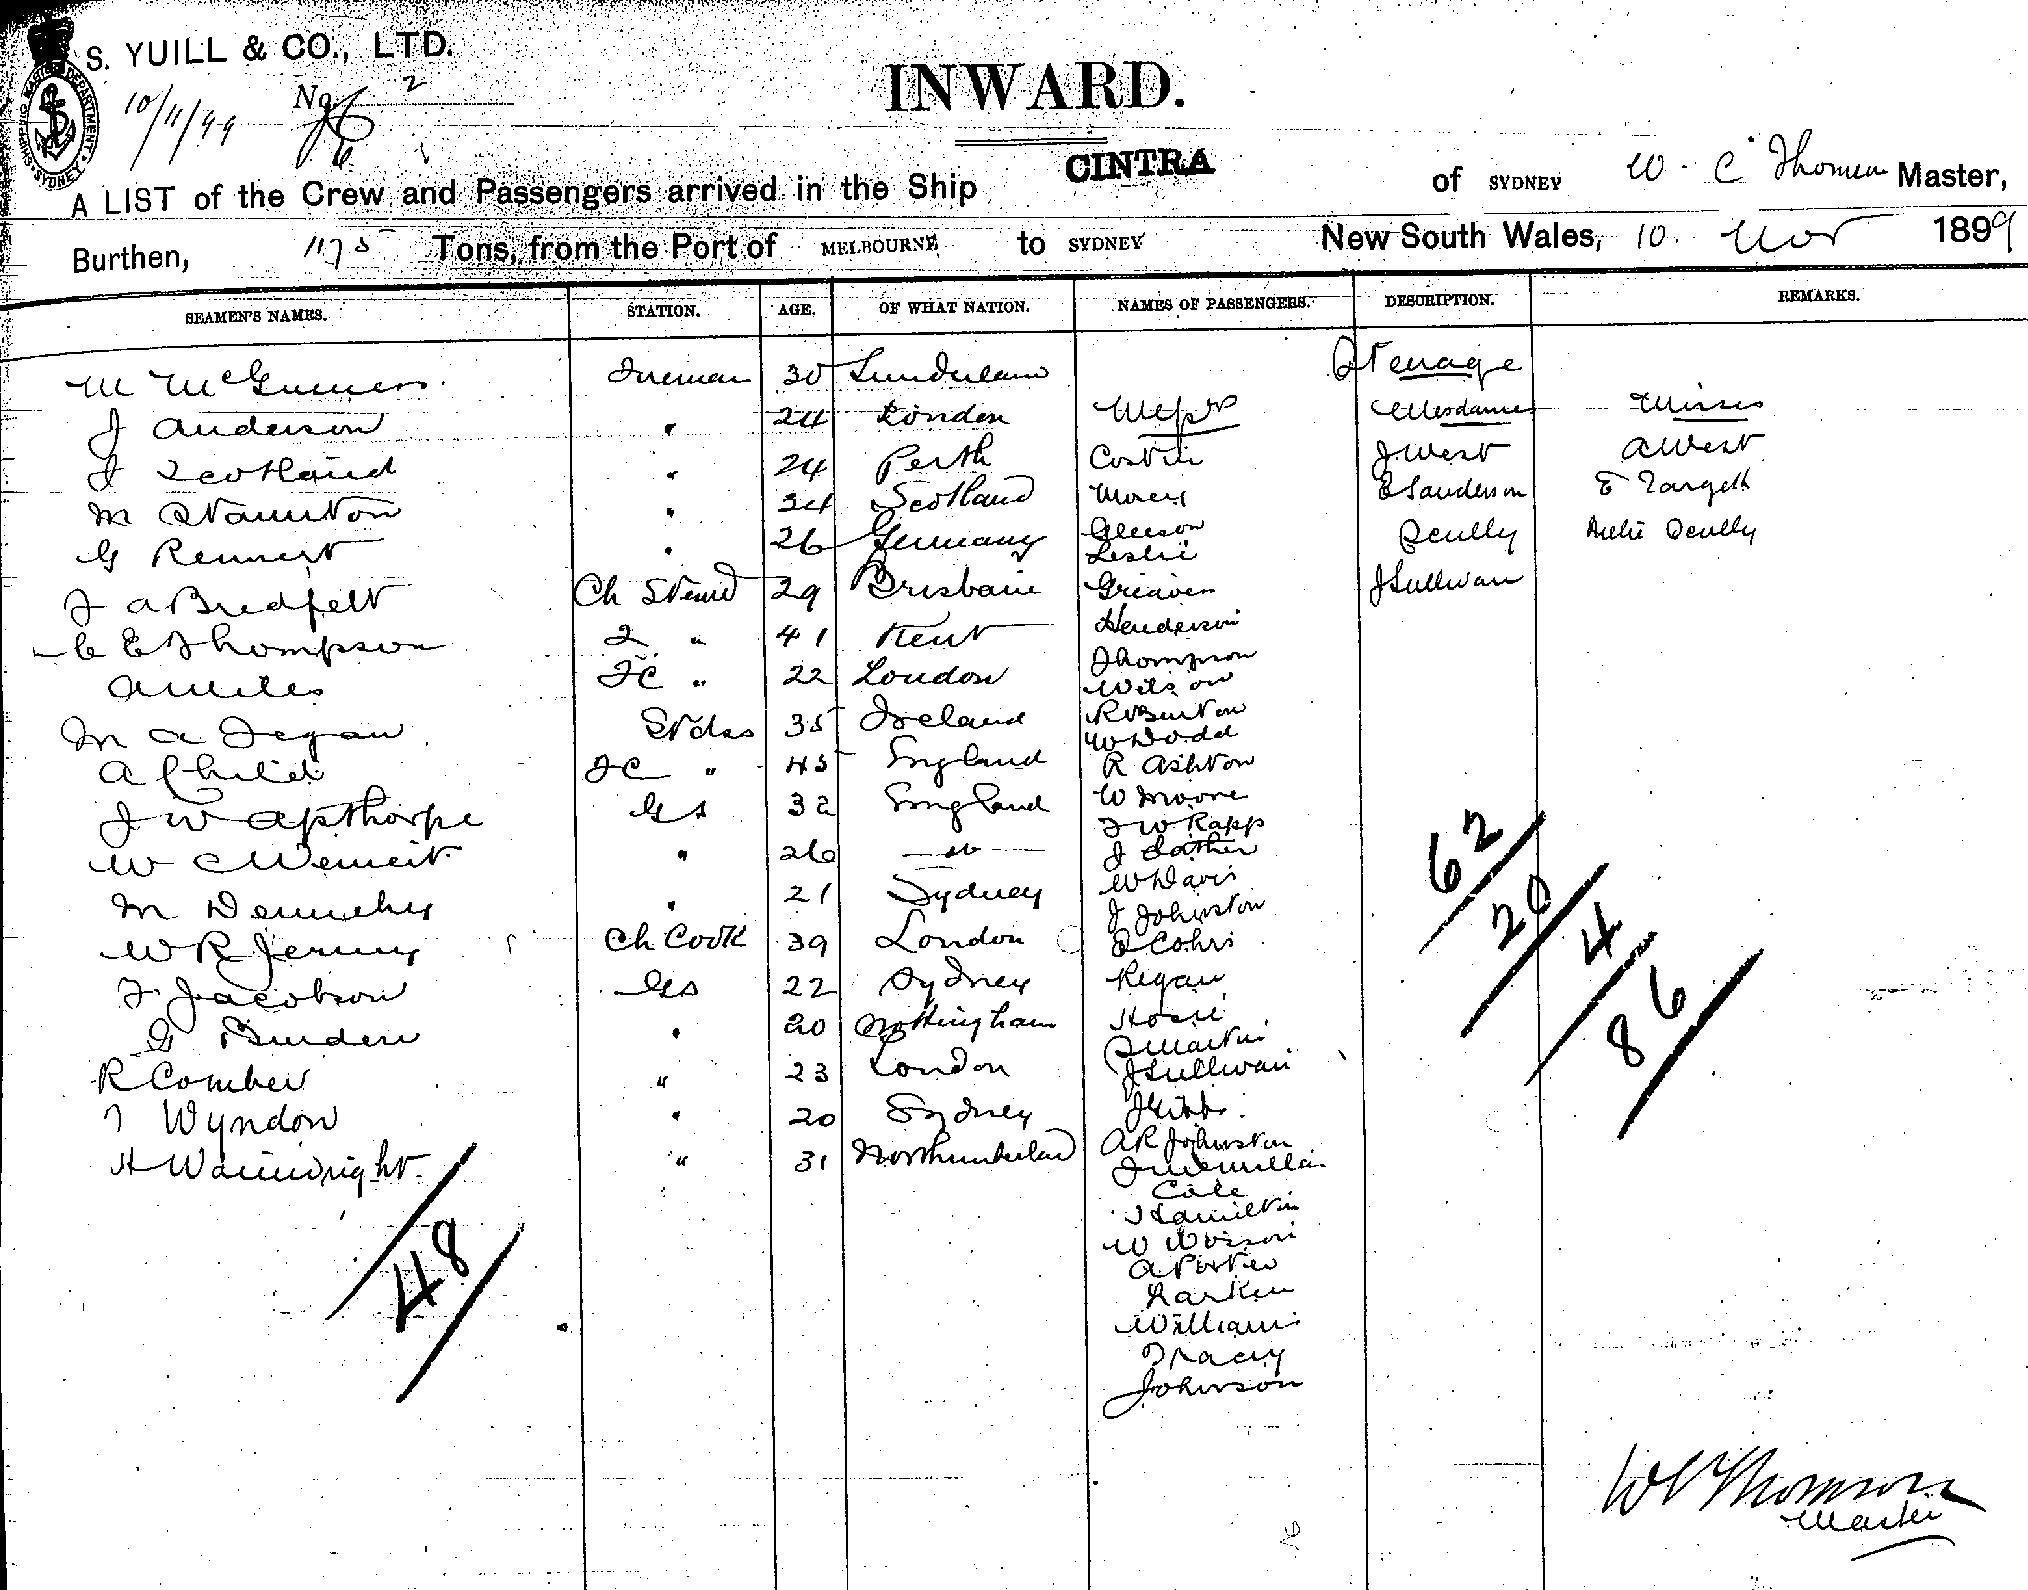 S. YUILL & CO., LTD.
SHIPPING MASTER'S DEPARTMENT SYDNEY
10/11/99 No. 2
INWARD.
A LIST of the Crew and Passengers arrived in the Ship CINTRA of SYDNEY W. C Thomson Master,
Burthen, 1175 Tons, from the Port of MELBOURNE to SYDNEY New South Wales, 10. Nov 1899
SEAMEN'S NAMES. STATION. AGE. OF WHAT NATION. NAMES OF PASSENGERS. DESCRIPTION. REMARKS.
Steerage
Fireman 30 Sunderland
J Anderson " 24 London Messrs Mesdames Misses
J Scotland " 24 Perth J West A West
M Staunton " 34 Scotland E Sanderson E Targett
G Rennert " 26 Germany Gleeson Scully Scully
Leslie
J A Bredfelt Ch Stewd 29 Brisbane Greaves J Sullivan
C E Thompson 2 " 41 Kent Henderson
A Miles FC " 22 London Thompson
Wilson
M A Fegan Stdss 35 Ireland R Burton
W Dodd
A Child FC " 45 England R Ashton
J W Apthorpe GS 32 England W Moore
J W Rapp
W C " 26 do J
M Dennehy " 21 Sydney W Davis
J Johnston
W R Ch Cook 39 London
F Jacobson GS 22 Sydney Regan
G Burden " 20 Nottingham
S Martin
R Comber " 23 London J Sullivan
T Wyndon " 20 Sydney J Gibbs
H Wainwright " 31 Northumberland A R Johnston
Cole
Hamilton
W
A Porter
Larkin
Williams
Tracey
Johnson
48
62
20
4
86
W C Thomson
Master